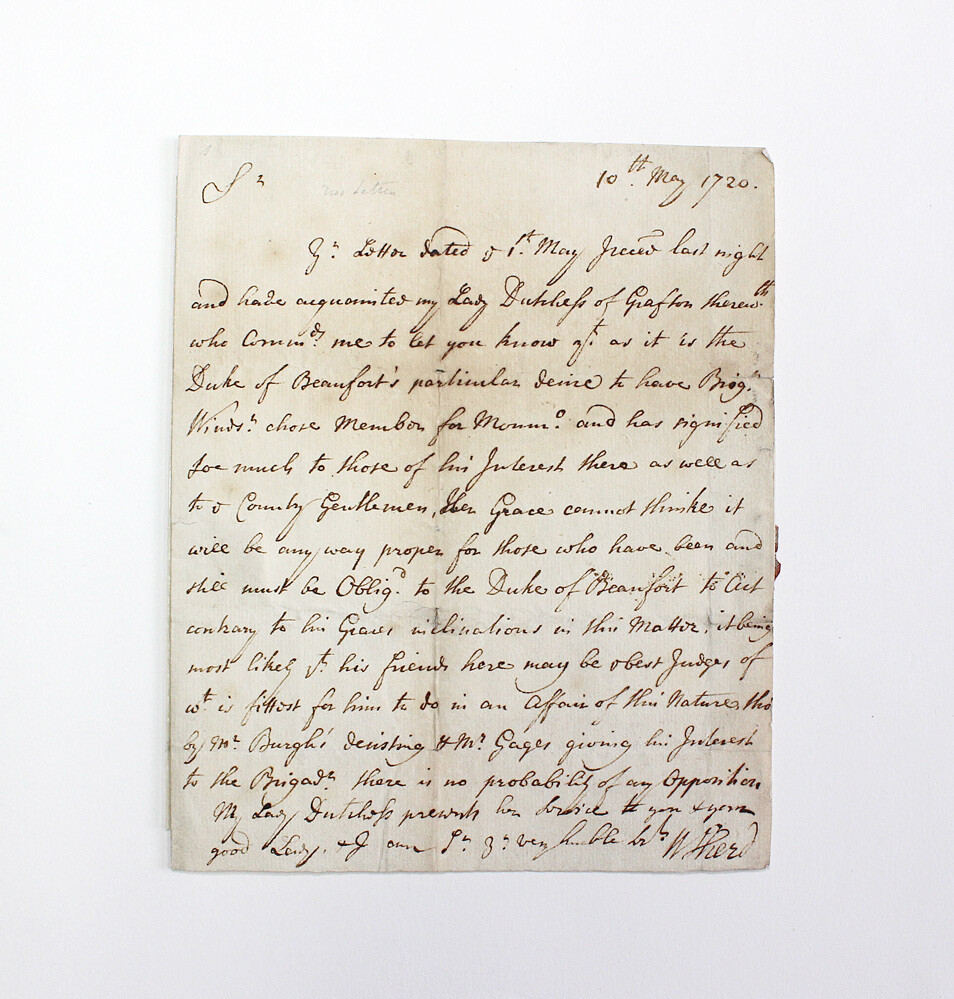 Sr 10th May 1720.
Yr Letter dated ye 1st May I recēd last night
and have acquainted my Lady Dutchess of Grafton therewth
who Commded me to let you know yt as it is the
Duke of Beaufort's particular desire to have Brigr
Windsr chose Member for Monmo and has signified
soe much to those of his Interest there as well as
to ye County Gentlemen, Her Grace cannot thinke it
will be any way proper for those who have been and
still must be Obligd to the Duke of Beaufort to Act
contrary to his Graces inclinations in this Matter, it being
most likely yt his friends here may be ye best Judges of
wt is fittest for him to do in an Affair of this Nature, tho
by Mr Burgh's desisting & Mr Gages giving his Interest
to the Brigadr there is no probability of any Opposition
My Lady Dutchess presents her Service to you & your
good Lady, & I am Sr Yr very humble Srt